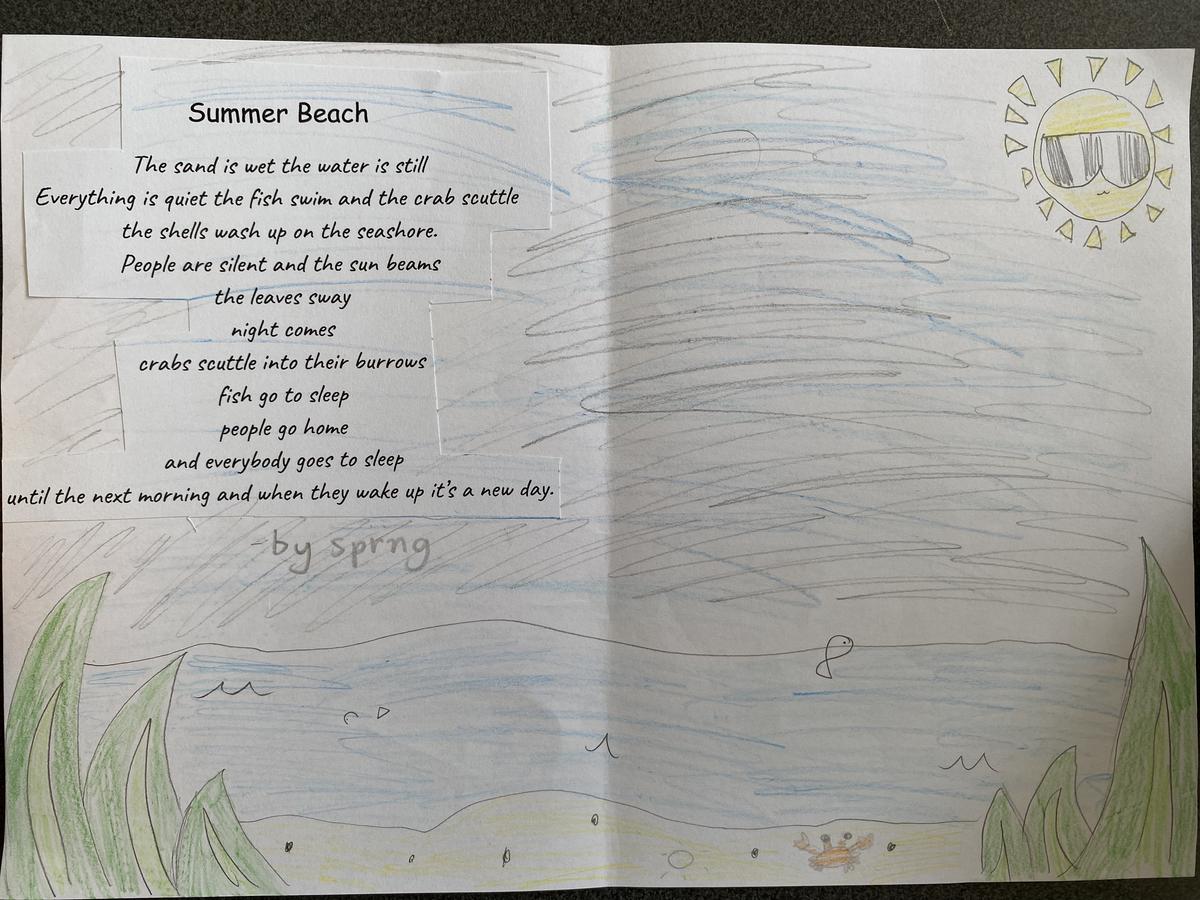 Summer Beach
The sand is wet the water is still
Everything is quiet the fish swim and the crab scuttle
the shells wash up on the seashore.
People are silent and the sun beams
the leaves sway
night comes
crabs scuttle into their burrows
fish go to sleep
people go home
and everybody goes to sleep
until the next morning and when they wake up it's a new day.
-by sprng